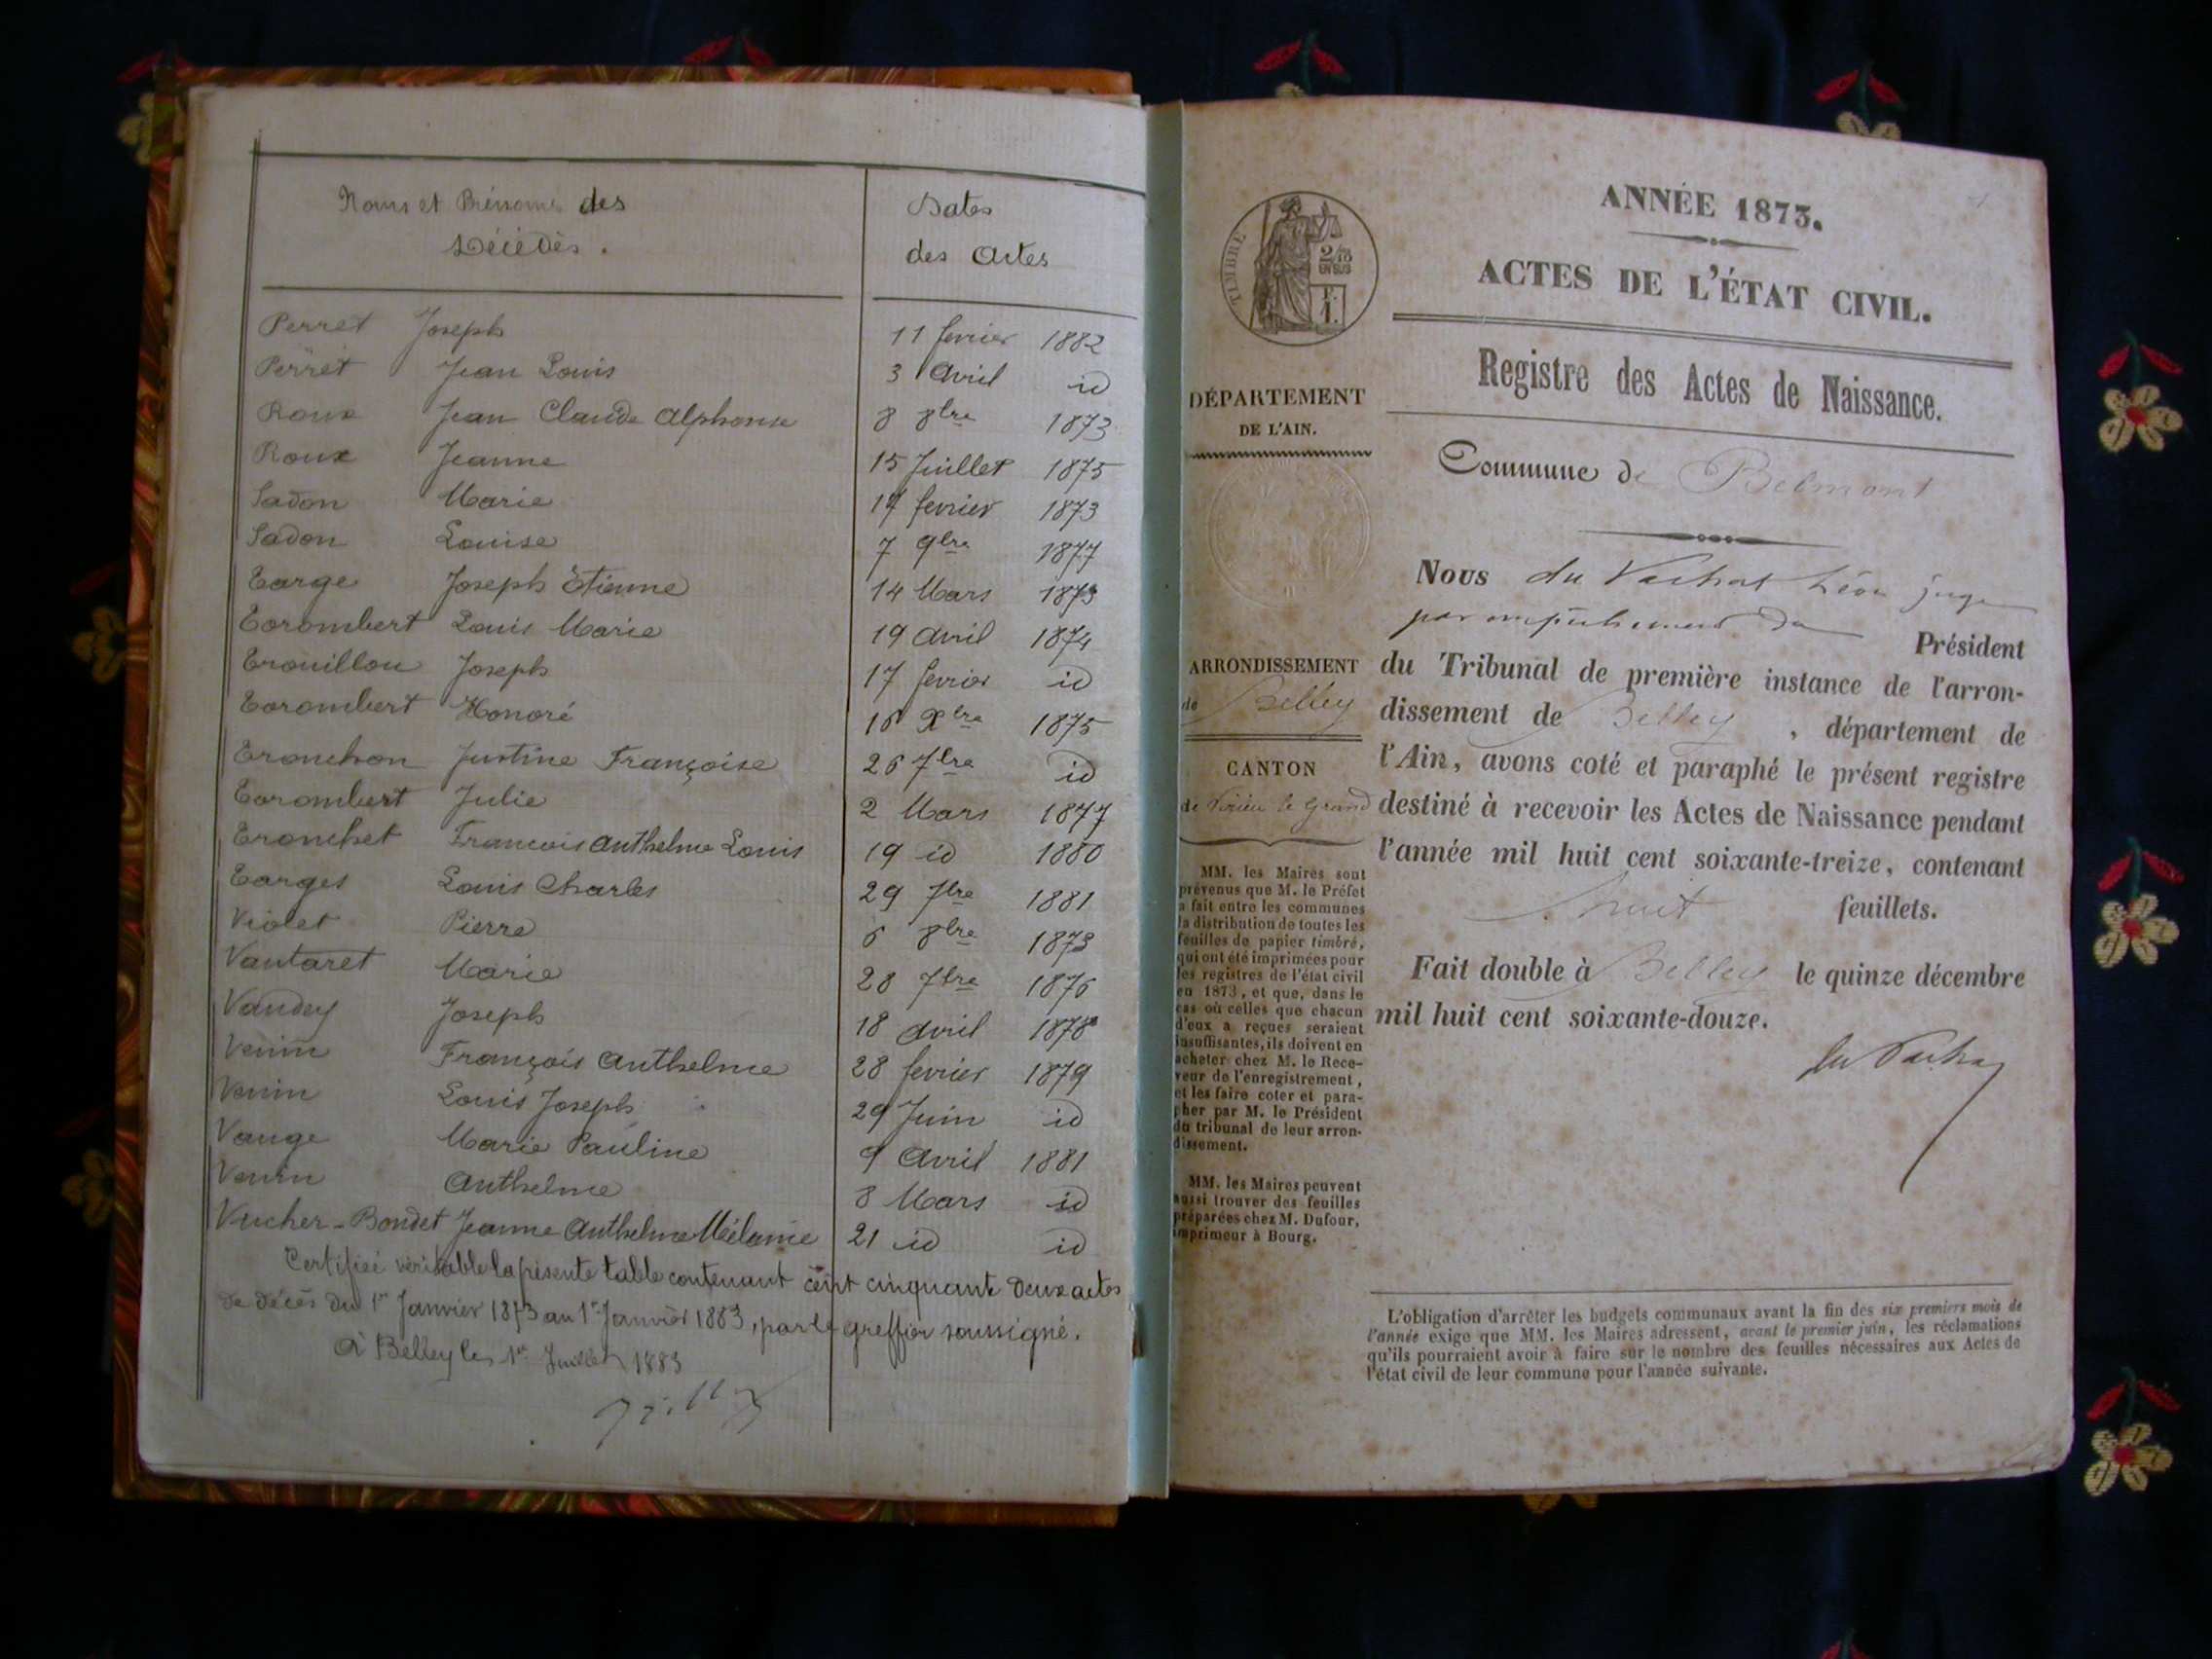 Noms et Prénoms des
Décédés.
Dates
des Actes
Perret Joseph 11 fevrier 1882
Perret Jean Louis 3 Avril id
Roux Jean Claude Alphonse 8 8bre 1873
Roux Jeanne 15 Juillet 1875
Sadon Marie 14 fevrier 1873
Sadon Louise 7 9bre 1877
Targe Joseph Etienne 14 Mars 1873
Torombert Louis Marie 19 avril 1874
Trouillou Joseph 17 fevrier id
Torombert Honoré 16 Xbre 1875
Tronchon Justine Françoise 26 7bre id
Torombert Julie 2 Mars 1877
Tronchet Francois Anthelme Louis 19 id 1880
Targes Louis Charles 29 7bre 1881
Violet Pierre 6 8bre 1873
Vautaret Marie 28 7bre 1876
Vaudey Joseph 18 avril 1878
Venin François Anthelme 28 fevrier 1879
Venin Louis Joseph 29 Juin id
Vauge Marie Pauline 9 Avril 1881
Venin Anthelme 8 Mars id
Vucher-Bondet Jeanne Anthelme Mélanie 21 id id
Certifiée véritable la présente table contenant cent cinquante deux actes
de décés du 1er Janvier 1873 au 1er Janvier 1883, par le greffier soussigné.
A Belley le 1er Juillet 1883
ANNÉE 1873.
ACTES DE L'ÉTAT CIVIL.
Registre des Actes de Naissance.
TIMBRE
2/10
EN SUS
F.
1.
DÉPARTEMENT
DE L'AIN.
ARRONDISSEMENT
de Belley
CANTON
de Virieu le Grand
MM. les Maires sont
prévenus que M. le Préfet
a fait entre les communes
la distribution de toutes les
feuilles de papier timbré,
qui ont été imprimées pour
les registres de l'état civil
en 1873, et que, dans le
cas où celles que chacun
d'eux a reçues seraient
insuffisantes, ils doivent en
acheter chez M. le Rece-
veur de l'enregistrement,
et les faire coter et para-
pher par M. le Président
du tribunal de leur arron-
dissement.
MM. les Maires peuvent
aussi trouver des feuilles
préparées chez M. Dufour,
imprimeur à Bourg.
Commune de Belmont
Nous du Vachat Léon juge
par empêchement du Président
du Tribunal de première instance de l'arron-
dissement de Belley, département de
l'Ain, avons coté et paraphé le présent registre
destiné à recevoir les Actes de Naissance pendant
l'année mil huit cent soixante-treize, contenant
huit feuillets.
Fait double à Belley le quinze décembre
mil huit cent soixante-douze.
du Vachat
L'obligation d'arrêter les budgets communaux avant la fin des six premiers mois de
l'année exige que MM. les Maires adressent, avant le premier juin, les réclamations
qu'ils pourraient avoir à faire sur le nombre des feuilles nécessaires aux Actes de
l'état civil de leur commune pour l'année suivante.